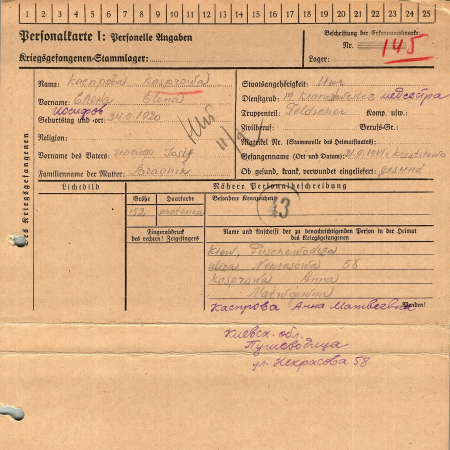 1 2 3 4 5 6 7 8 9 10 11 12 13 14 15 16 17 18 19 20 21 22 23 24 25
Personalkarte I: Personelle Angaben
Kriegsgefangenen-Stammlager:
Beschriftung der Erkennungsmarke
Nr. 145
Lager:
Name: Каспрова Kasprowa
Vorname: Elena
Иосифов
Geburtstag und -ort: 1920
Religion:
Vorname des Vaters: Josif
Familienname der Mutter:
Staatsangehörigkeit:
Dienstgrad: медсестра
Truppenteil: Feldscher Komp. usw.:
Zivilberuf: Berufs-Gr.:
Matrikel Nr. (Stammrolle des Heimatstaates):
Gefangennahme (Ort und Datum):
Ob gesund, krank, verwundet eingeliefert: gesund
des Kriegsgefangenen
Lichtbild
Nähere Personalbeschreibung
Größe Haarfarbe Besondere Kennzeichen:
43
Fingerabdruck
des rechten! Zeigefingers
Name und Anschrift der zu benachrichtigenden Person in der Heimat
des Kriegsgefangenen
Kiew, Puschewodiza
uliza Nekrasowa 58
Kosprowa Anna
Matwgewna
Каспрова Анна Матвеевна
Wenden!
Киевск. обл.
Пущеводица
ул. Некрасова 58